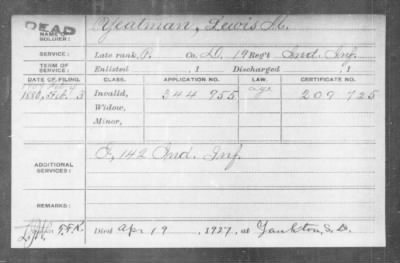 DEAD
NAME OF SOLDIER: Yeatman, Lewis M.
SERVICE: Late rank, P. Co. D, 19 Reg't Ind. Inf.
TERM OF SERVICE: Enlisted , 1 Discharged , 1
DATE OF FILING. CLASS. APPLICATION NO. LAW. CERTIFICATE NO.
1880, Feb. 3 Invalid, 344 955 age 209 725
Widow,
Minor,
ADDITIONAL SERVICES: I, 142 Ind. Inf.
REMARKS:
F.F.K. Died Apr 19, 1927, at Yankton, S.D.